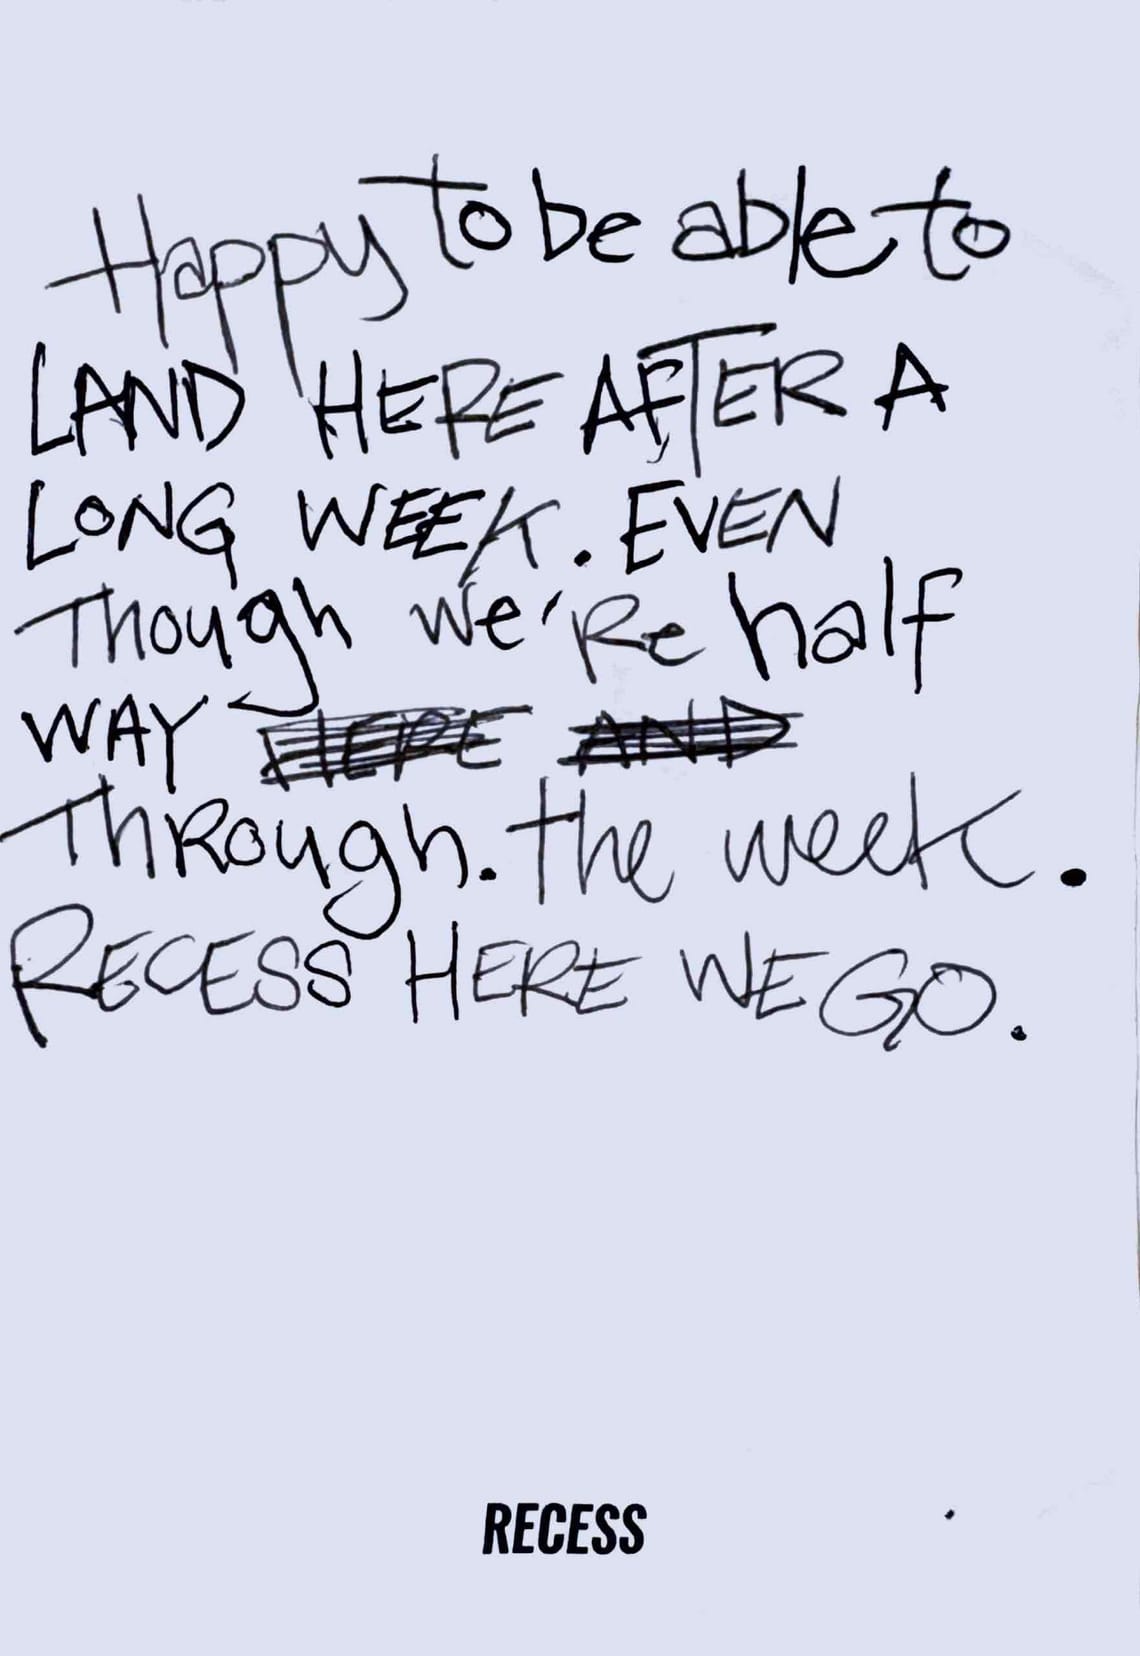 Happy to be able to
LAND HERE AFTER A
LONG WEEK. EVEN
Though we're half
WAY HERE AND
ThRough. the week.
RECESS HERE WE GO.
RECESS